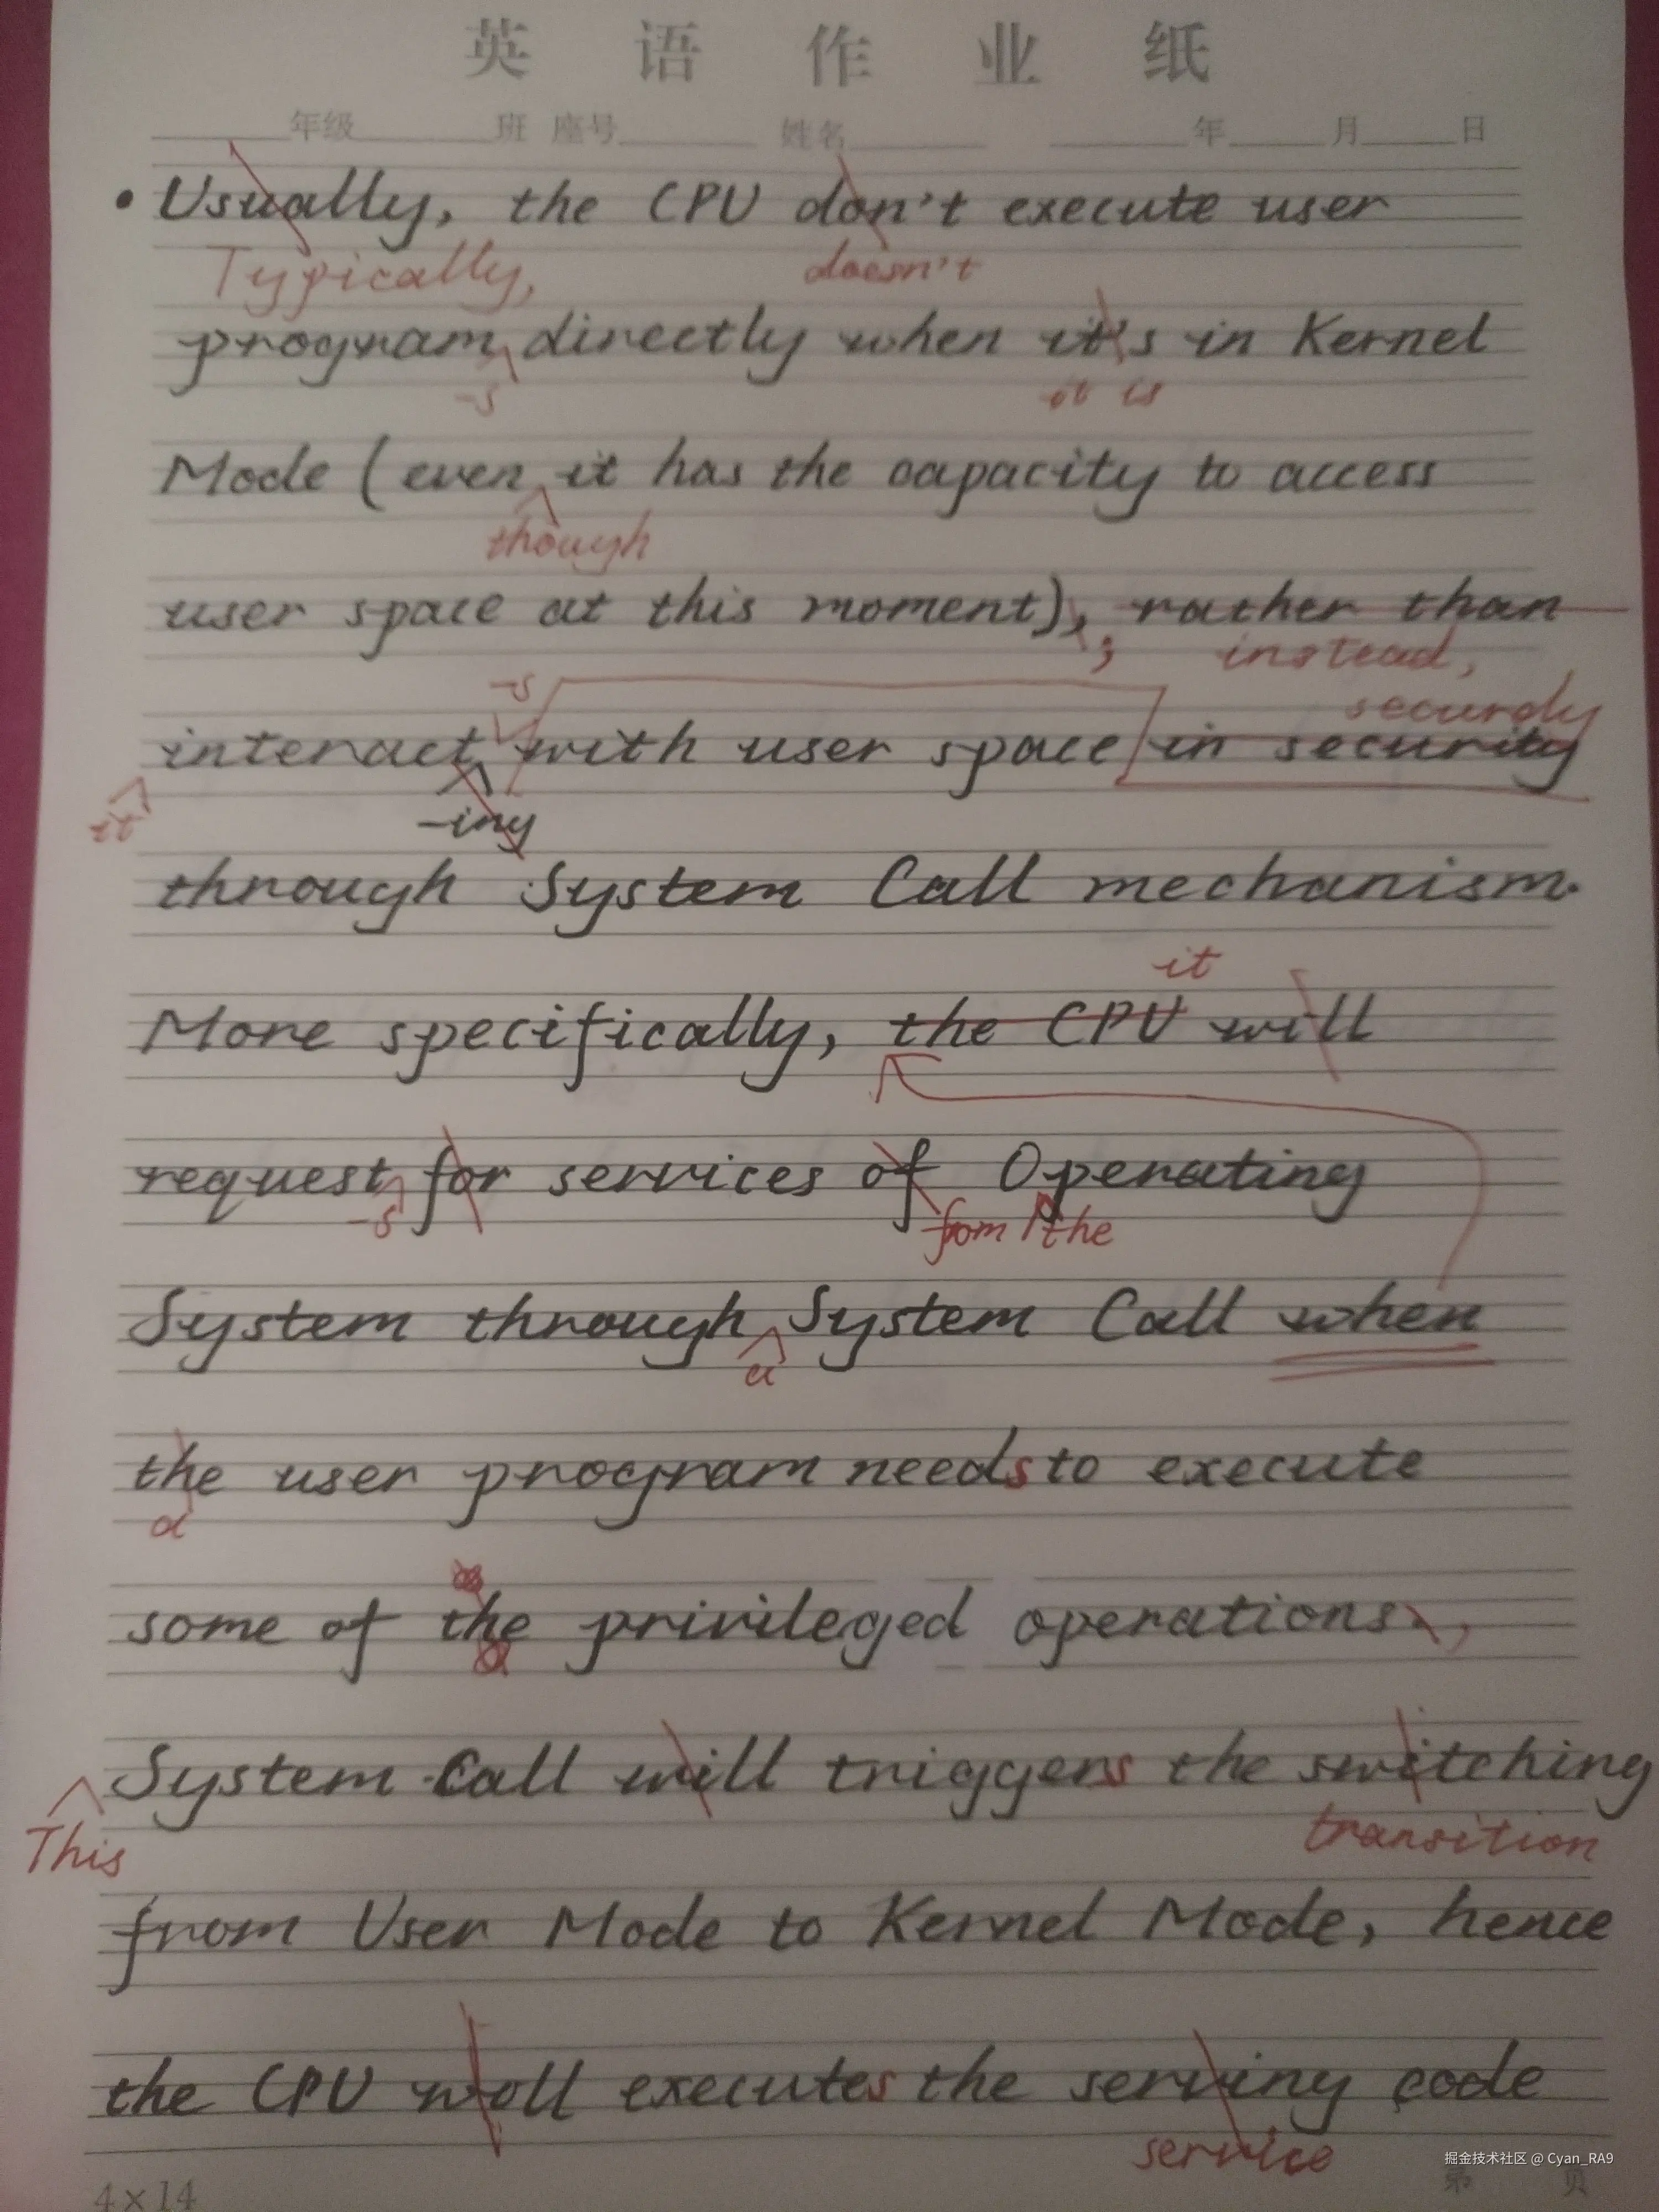 英 语 作 业 纸
年级 班 座号 姓名 年 月 日
• Usually, the CPU don't execute user
Typically, doesn't
program directly when it's in Kernel
-s it is
Mode (even it has the capacity to access
though
user space at this moment), rather than
; instead,
-s securely
interact with user space in security
it -ing
through System Call mechanism.
it
More specifically, the CPU will
request for services of Operating
-s from the
System through System Call when
a
the user program needs to execute
a
some of the privileged operations,
System Call will triggers the switching
This transition
from User Mode to Kernel Mode, hence
the CPU will executes the serving code
service
掘金技术社区 @ Cyan_RA9
4×14 第 页